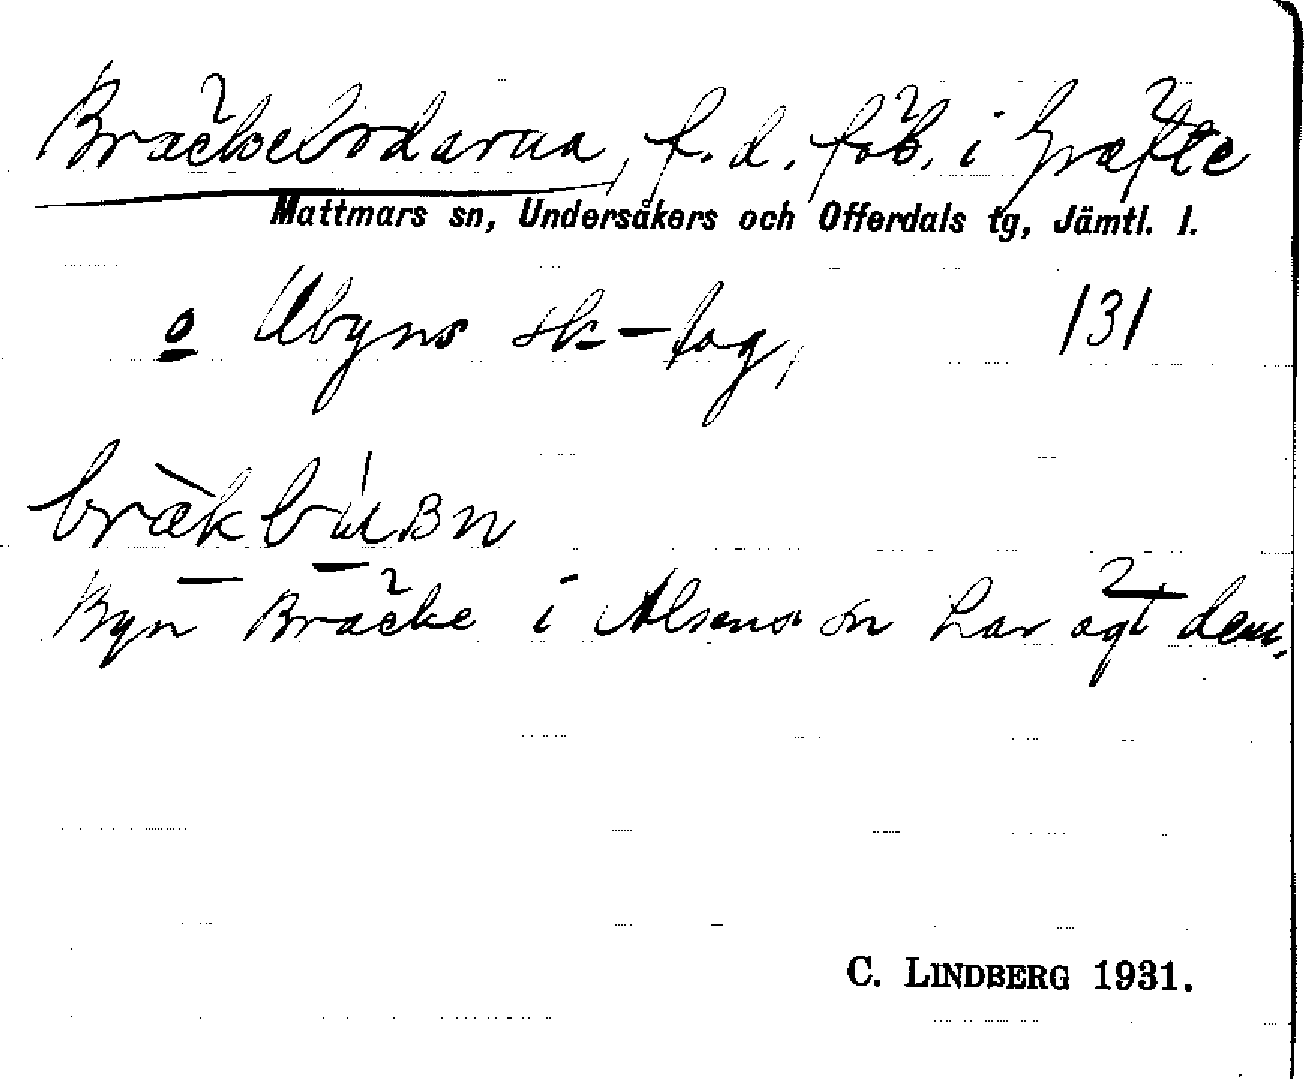 Bräckebodarna, f. d. fäb. i Gräfte
Mattmars sn, Undersåkers och Offerdals tg, Jämtl. l.
o Åbyns sk-lag, 131
Byn Bräcke i Alsens sn har ägt dem.
C. LINDBERG 1931.